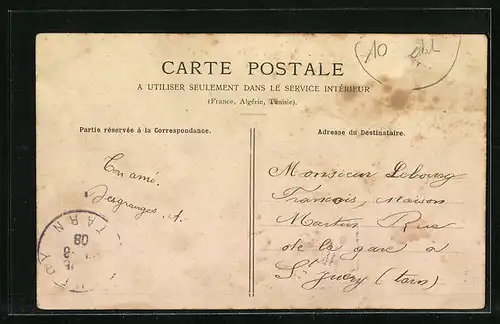 10
CARTE POSTALE
A UTILISER SEULEMENT DANS LE SERVICE INTÉRIEUR
(France, Algérie, Tunisie).
Partie réservée à la Correspondance.
Ton ami.
Desgranges. A.
TARN
08
Adresse du Destinataire.
Monsieur Lebourg
Francois, Maison
Martin Rue
de la gare à
St Juéry (tarn)